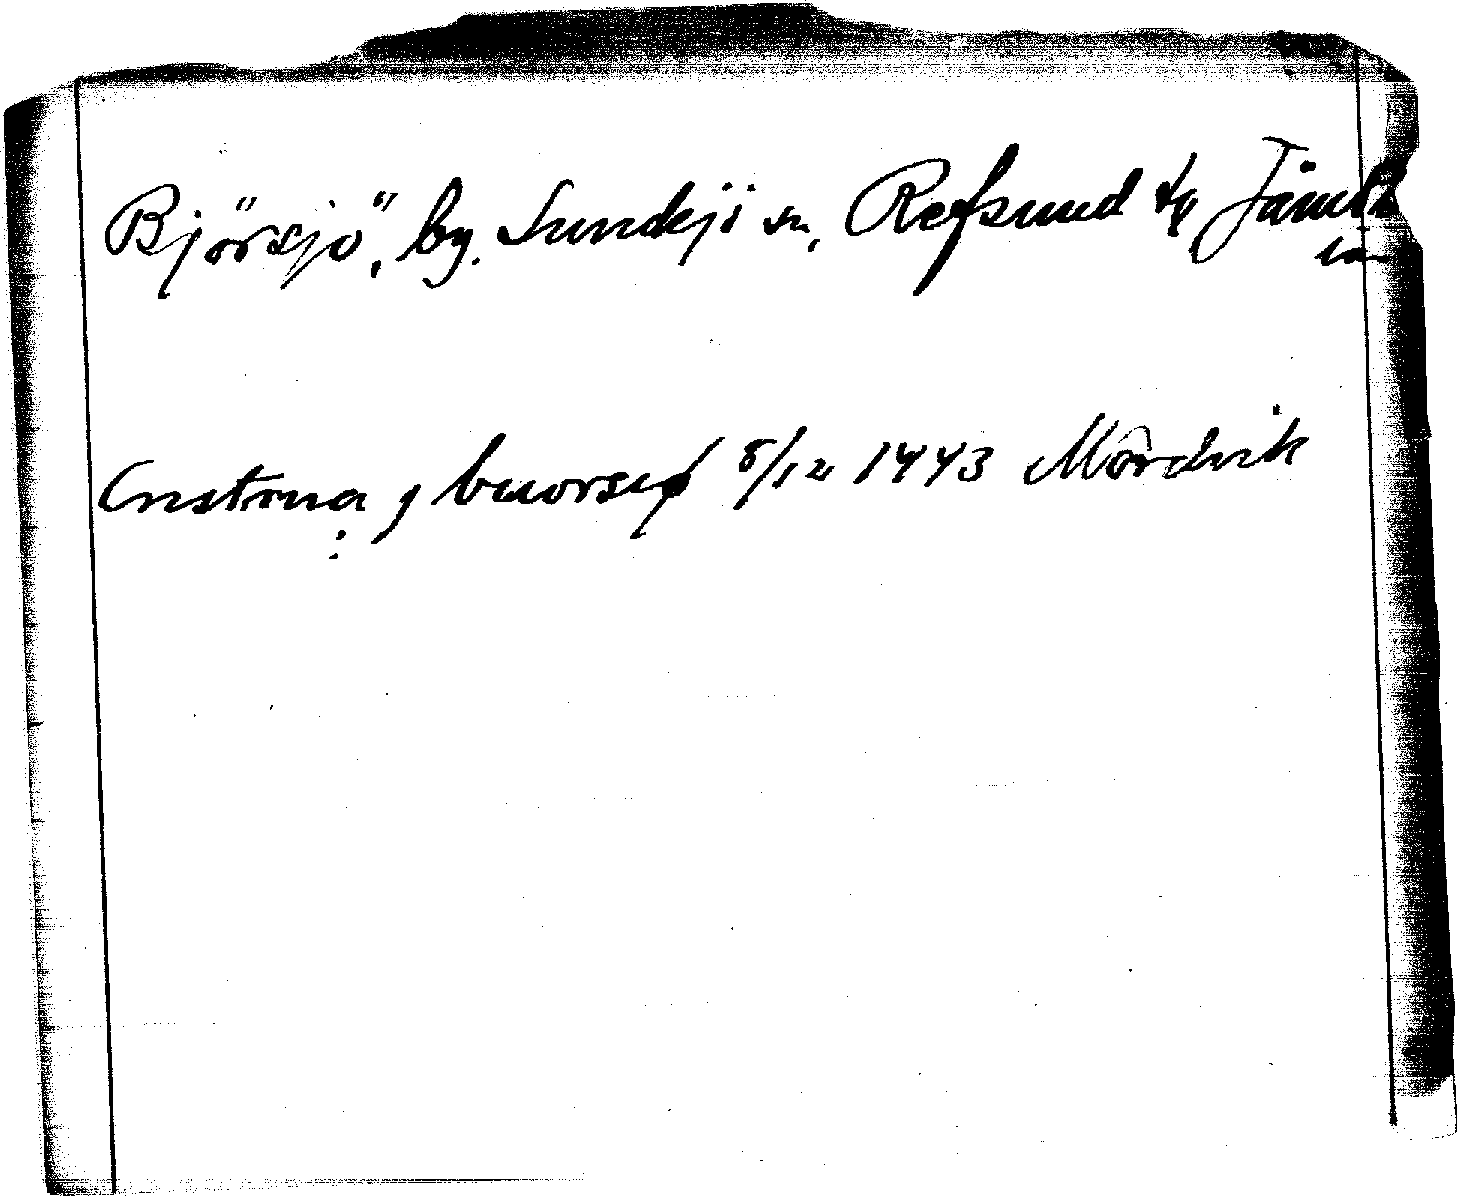 Björsjö, by. Sundsjö sn, Refsund tg Jämt
lan
Cristina j biorsiø 8/12 1443 Mördvik